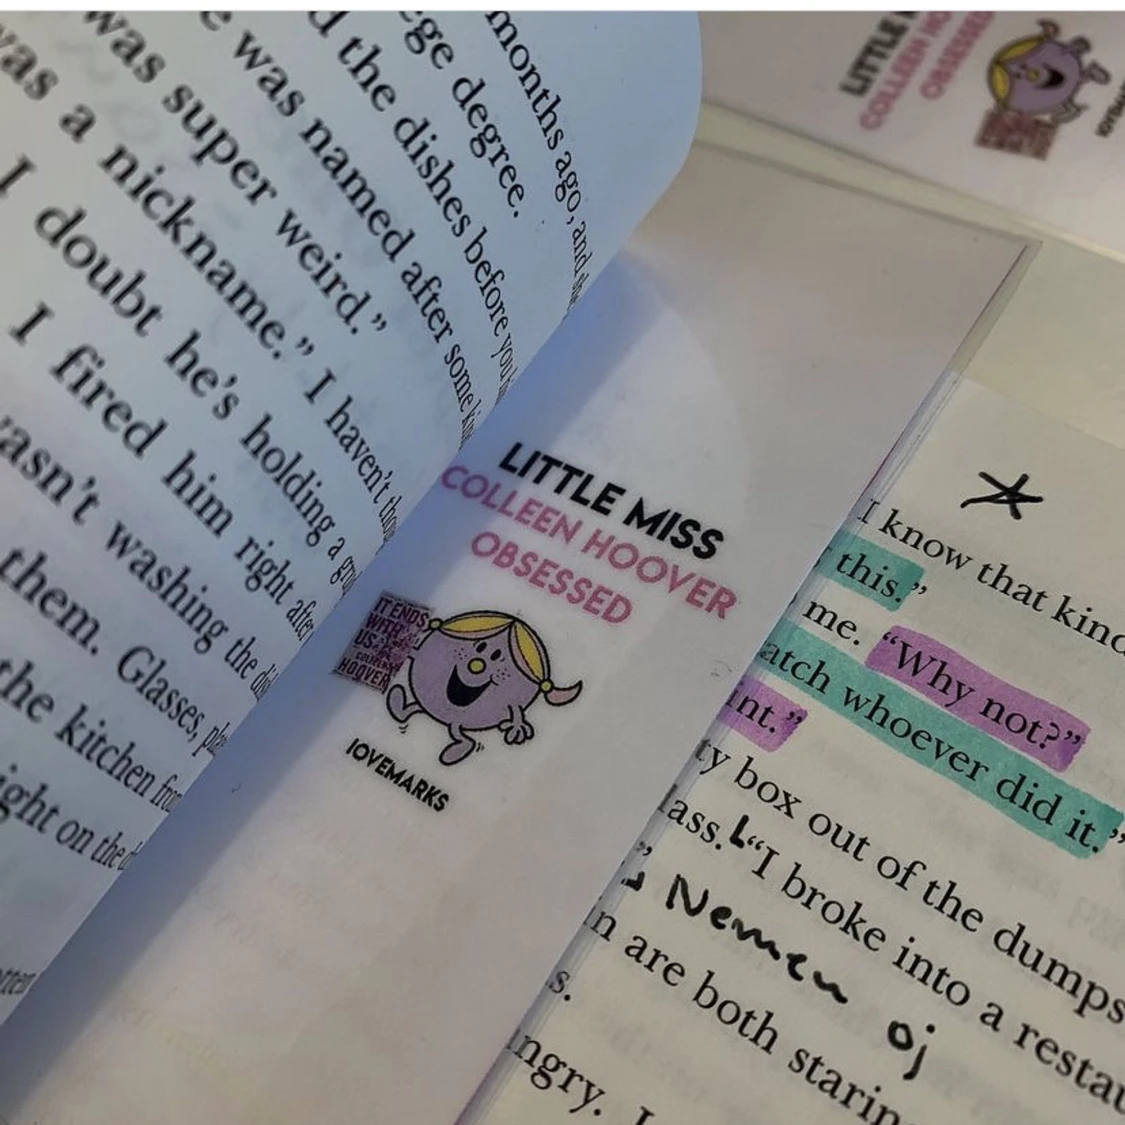 months ago, and
ege degree.
d the dishes before you
e was named after some
was super weird.”
was a nickname.” I haven't
I doubt he's holding a
I fired him right after
wasn't washing the
them. Glasses,
the kitchen
ight on the
LITTLE
COLLEEN
OBSESSED
LITTLE MISS
COLLEEN HOOVER
OBSESSED
IT ENDS
WITH
US
COLLEEN
HOOVER
IOVEMARKS
I know that kind
this.”
me. “Why not?”
atch whoever did it.”
int.”
ty box out of the dumps
lass. “I broke into a restau
Nemen oj
n are both starin
s.
ngry. I